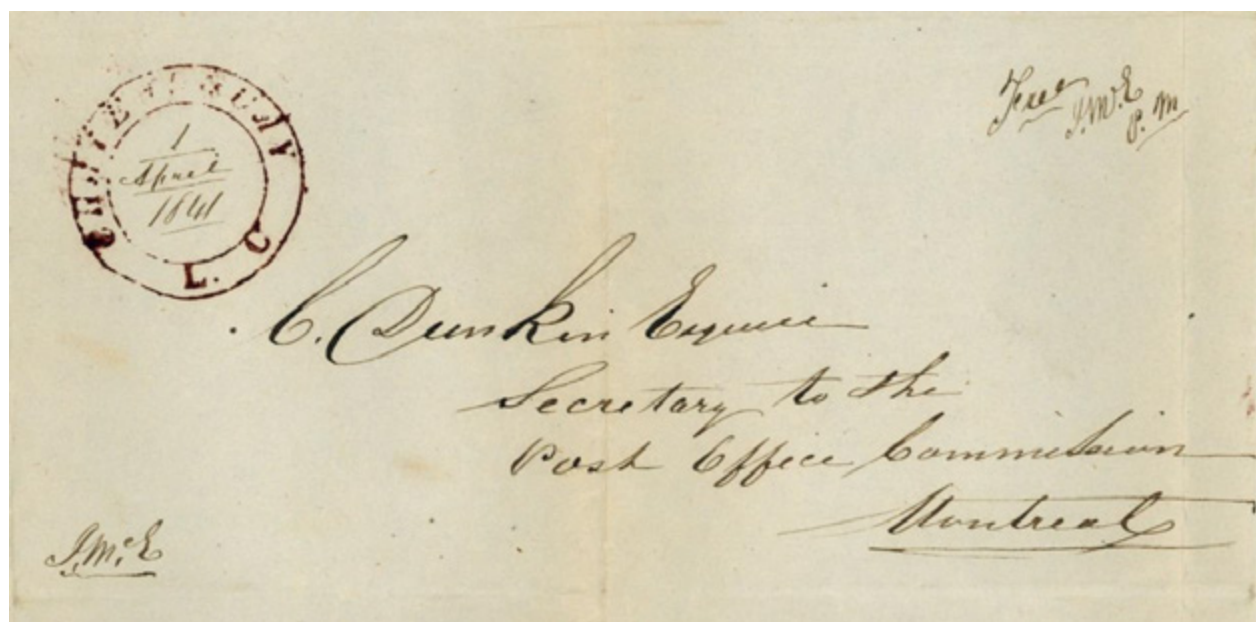 CHATEAUGUAY
L. C
1
April
1841
Free
J. McE
P. M
C. Dunkin Esquire
Secretary to the
Post Office Commission
Montreal
J. McE